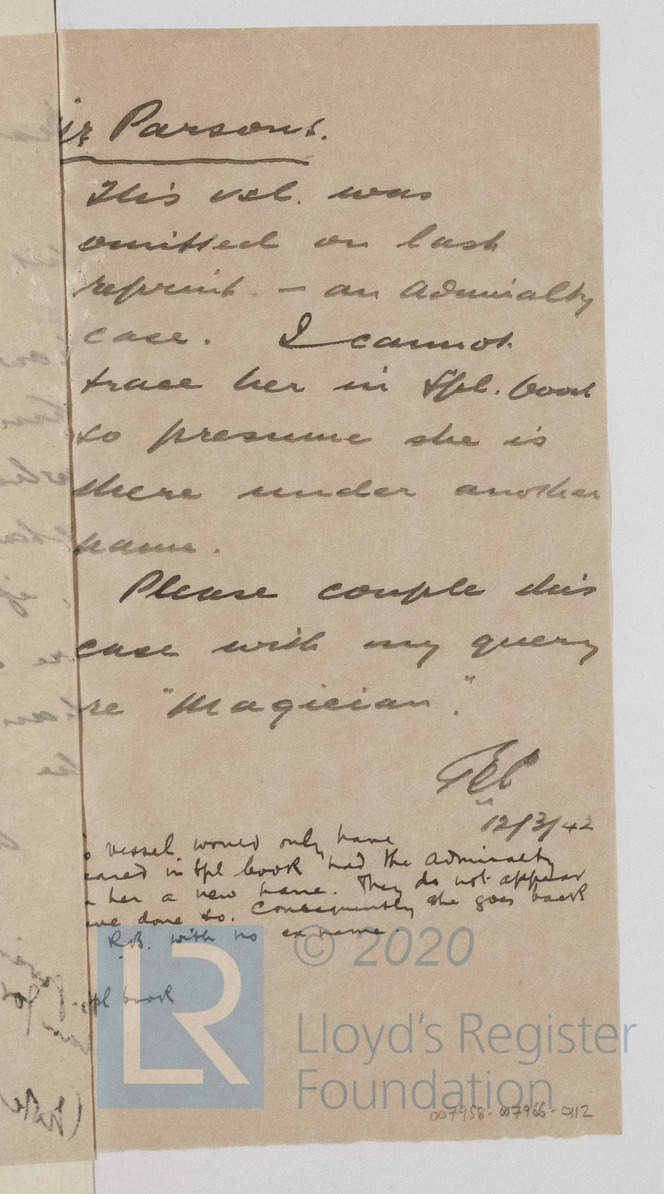 Parsons.
This vsl. was
omitted on last
reprint. – an Admiralty
case. I cannot
trace her in Spl. book
so presume she is
there under another
name.
Please couple this
case with my query
re "Magician".
12/3/42
vessel would only have
eared in Spl book had the Admiralty
her a new name. They do not appear
ve done so. Consequently she goes back
R.B. with no ex name.
spl book
LR
© 2020
Lloyd's Register
Foundation
007958-007966-0112